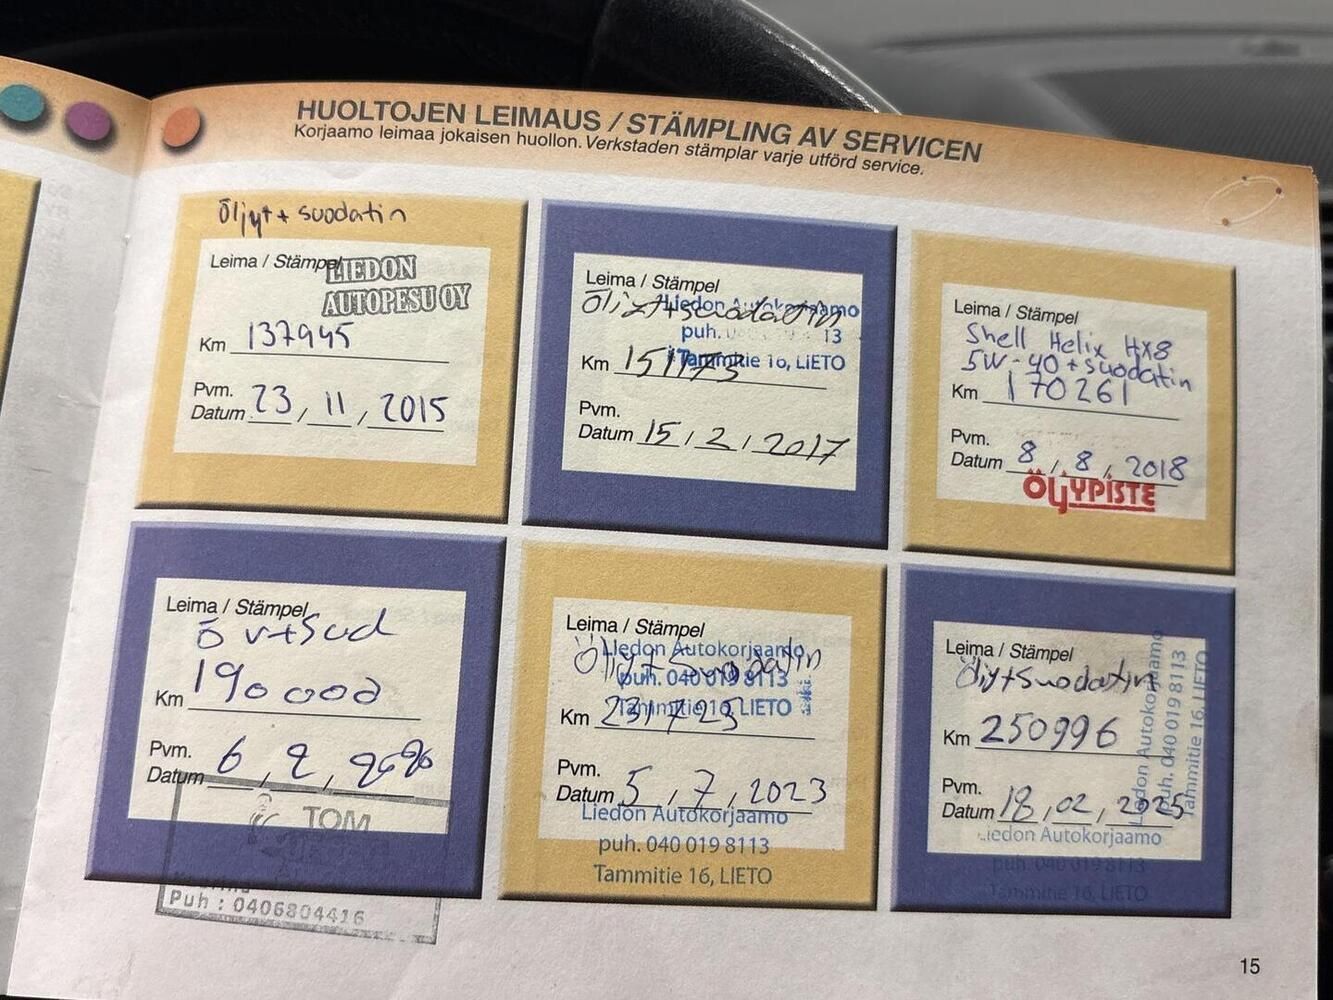 HUOLTOJEN LEIMAUS / STÄMPLING AV SERVICEN
Korjaamo leimaa jokaisen huollon. Verkstaden stämplar varje utförd service.
Öljyt + suodatin
Leima / Stämpel
LIEDON
AUTOPESU OY
Km 137945
Pvm.
Datum 23 / 11 / 2015
Leima / Stämpel
Öljyt+suodatin
Liedon Autokorjaamo
puh. 13
Tammitie 16, LIETO
Km 151173
Pvm.
Datum 15 / 2 / 2017
Leima / Stämpel
Shell Helix HX8
5W-40 + suodatin
Km 170261
Pvm.
Datum 8 / 8 / 2018
ÖLJYPISTE
Leima / Stämpel
Km 190000
Pvm.
Datum 6 , 2 ,
TOM
Puh : 0406804416
Leima / Stämpel
Öljyt+Suodatin
Liedon Autokorjaamo
puh. 040 019 8113
Tammitie 16, LIETO
Km 231725
Pvm.
Datum 5 , 7 , 2023
Liedon Autokorjaamo
puh. 040 019 8113
Tammitie 16, LIETO
Leima / Stämpel
Öljyt+Suodatin
Km 250996
Pvm.
Datum 18 , 02 , 2025
Liedon Autokorjaamo
puh. 040 019 8113
Tammitie 16, LIETO
Liedon Autokorjaamo
puh. 040 019 8113
Tammitie 16, LIETO
15